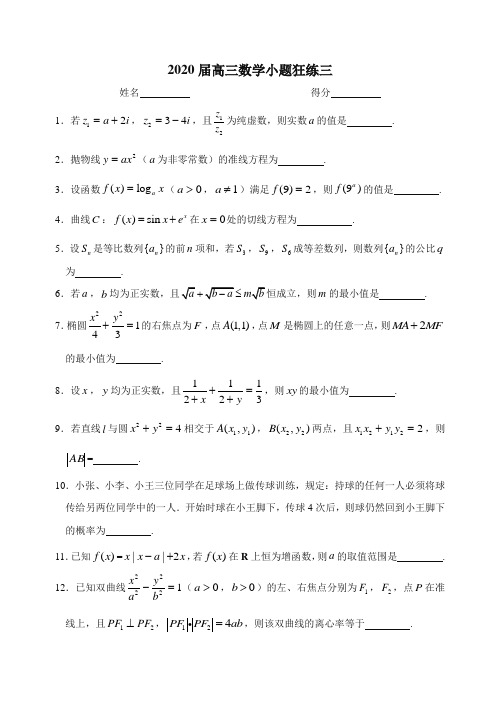 2020 届高三数学小题狂练三
姓名 __________ 得分 __________
1．若 z₁ = a + 2i，z₂ = 3 − 4i，且 z₁/z₂ 为纯虚数，则实数 a 的值是 ________ .
2．抛物线 y = ax²（a 为非零常数）的准线方程为 ________ .
3．设函数 f(x) = logₐ x（a > 0，a ≠ 1）满足 f(9) = 2，则 f(9ᵃ) 的值是 ________ .
4．曲线 C：f(x) = sin x + eˣ 在 x = 0 处的切线方程为 ________ .
5．设 Sₙ 是等比数列 {aₙ} 的前 n 项和，若 S₃，S₉，S₆ 成等差数列，则数列 {aₙ} 的公比 q
为 ________ .
6．若 a，b 均为正实数，且 √a + √(b − a) ≤ m√b 恒成立，则 m 的最小值是 ________ .
7．椭圆 x²/4 + y²/3 = 1 的右焦点为 F，点 A(1,1)，点 M 是椭圆上的任意一点，则 MA + 2MF
的最小值为 ________ .
8．设 x，y 均为正实数，且 1/(2 + x) + 1/(2 + y) = 1/3，则 xy 的最小值为 ________ .
9．若直线 l 与圆 x² + y² = 4 相交于 A(x₁, y₁)，B(x₂, y₂) 两点，且 x₁x₂ + y₁y₂ = 2，则
|AB| = ________ .
10．小张、小李、小王三位同学在足球场上做传球训练，规定：持球的任何一人必须将球
传给另两位同学中的一人．开始时球在小王脚下，传球 4 次后，则球仍然回到小王脚下
的概率为 ________ .
11．已知 f(x) = x | x − a | +2x，若 f(x) 在 R 上恒为增函数，则 a 的取值范围是 ________ .
12．已知双曲线 x²/a² − y²/b² = 1（a > 0，b > 0）的左、右焦点分别为 F₁，F₂，点 P 在准
线上，且 PF₁ ⊥ PF₂，|PF₁•PF₂| = 4ab，则该双曲线的离心率等于 ________ .